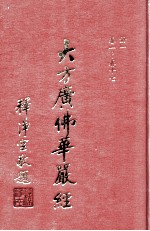 大方廣佛華嚴經
釋淨空敬題